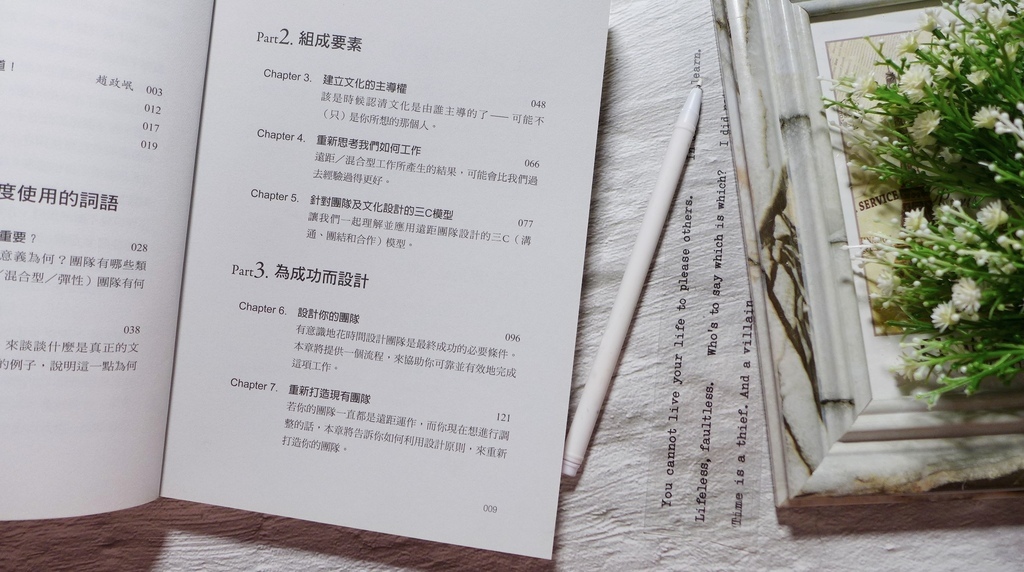 道！
趙政岷 003
012
017
019
度使用的詞語
重要？ 028
意義為何？團隊有哪些類
／混合型／彈性）團隊有何
038
來談談什麼是真正的文
的例子，說明這一點為何
Part2. 組成要素
Chapter 3. 建立文化的主導權 048
該是時候認清文化是由誰主導的了——可能不
（只）是你所想的那個人。
Chapter 4. 重新思考我們如何工作 066
遠距／混合型工作所產生的結果，可能會比我們過
去經驗過得更好。
Chapter 5. 針對團隊及文化設計的三C模型 077
讓我們一起理解並應用遠距團隊設計的三C（溝
通、團結和合作）模型。
Part3. 為成功而設計
Chapter 6. 設計你的團隊 096
有意識地花時間設計團隊是最終成功的必要條件。
本章將提供一個流程，來協助你可靠並有效地完成
這項工作。
Chapter 7. 重新打造現有團隊 121
若你的團隊一直都是遠距運作，而你現在想進行調
整的話，本章將告訴你如何利用設計原則，來重新
打造你的團隊。
009
You cannot live your life to please others. learn.
Lifeless, faultless. Who's to say which is which? I did
Time is a thief. And a villain
SERVICE